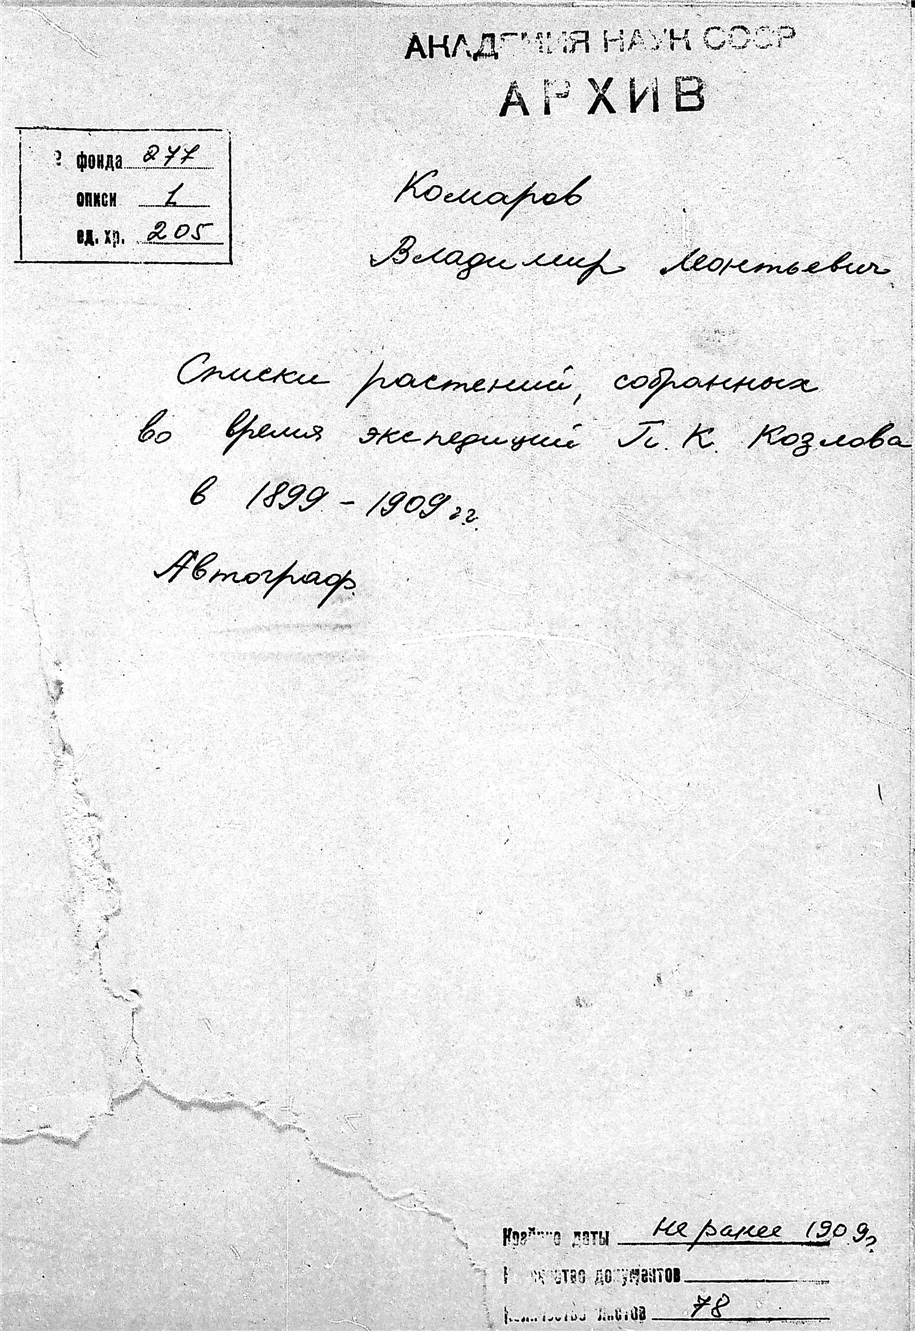 АКАДЕМИЯ НАУК СССР
АРХИВ
№ фонда 277
описи 1
ед. хр. 205
Комаров
Владимир Леонтьевич
Списки растений, собранных
во время экспедиций П. К. Козлова
в 1899 - 1909 гг.
Автограф.
Крайние даты не ранее 1909 г.
Количество документов
Количество листов 78